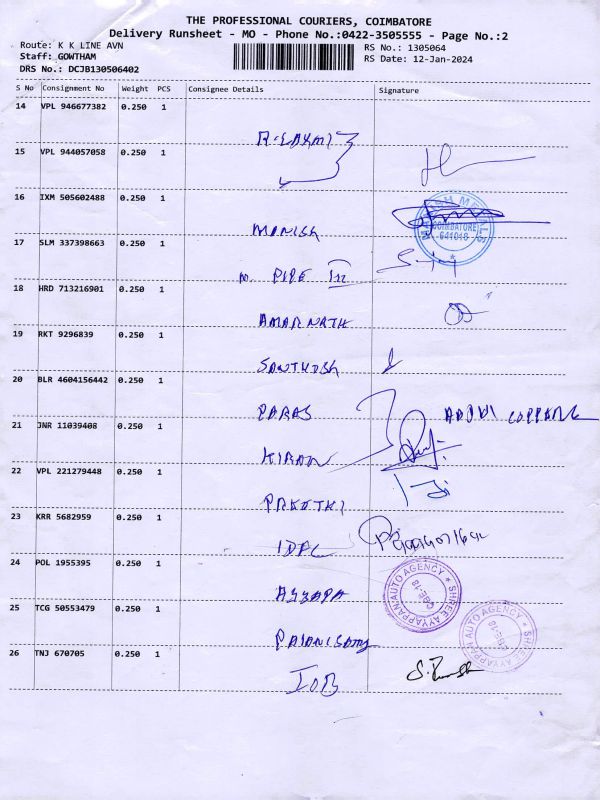 THE PROFESSIONAL COURIERS, COIMBATORE
Delivery Runsheet - MO - Phone No.:0422-3505555 - Page No.:2
Route: K K LINE AVN
Staff: GOWTHAM
DRS No.: DCJB130506402
RS No.: 1305064
RS Date: 12-Jan-2024
S No Consignment No Weight PCS Consignee Details Signature
14 VPL 946677382 0.250 1
R. LAXMI
15 VPL 944057058 0.250 1
16 IXM 505602488 0.250 1
MANISH
COIMBATORE
641018
17 SLM 337398663 0.250 1
PIPE
18 HRD 713216901 0.250 1
AMARNATH
19 RKT 9296839 0.250 1
SANTHOSH
20 BLR 4604156442 0.250 1
PARAS
21 JNR 11039408 0.250 1
KIRAN
22 VPL 221279448 0.250 1
23 KRR 5682959 0.250 1
IDPL
24 POL 1955395 0.250 1
AYYAPA
SHREE AYYAPPAN AUTO AGENCY
CBE-18
25 TCG 50553479 0.250 1
PALANISAMY
SHREE AYYAPPAN AUTO AGENCY
CBE-18
26 TNJ 670705 0.250 1
IOB